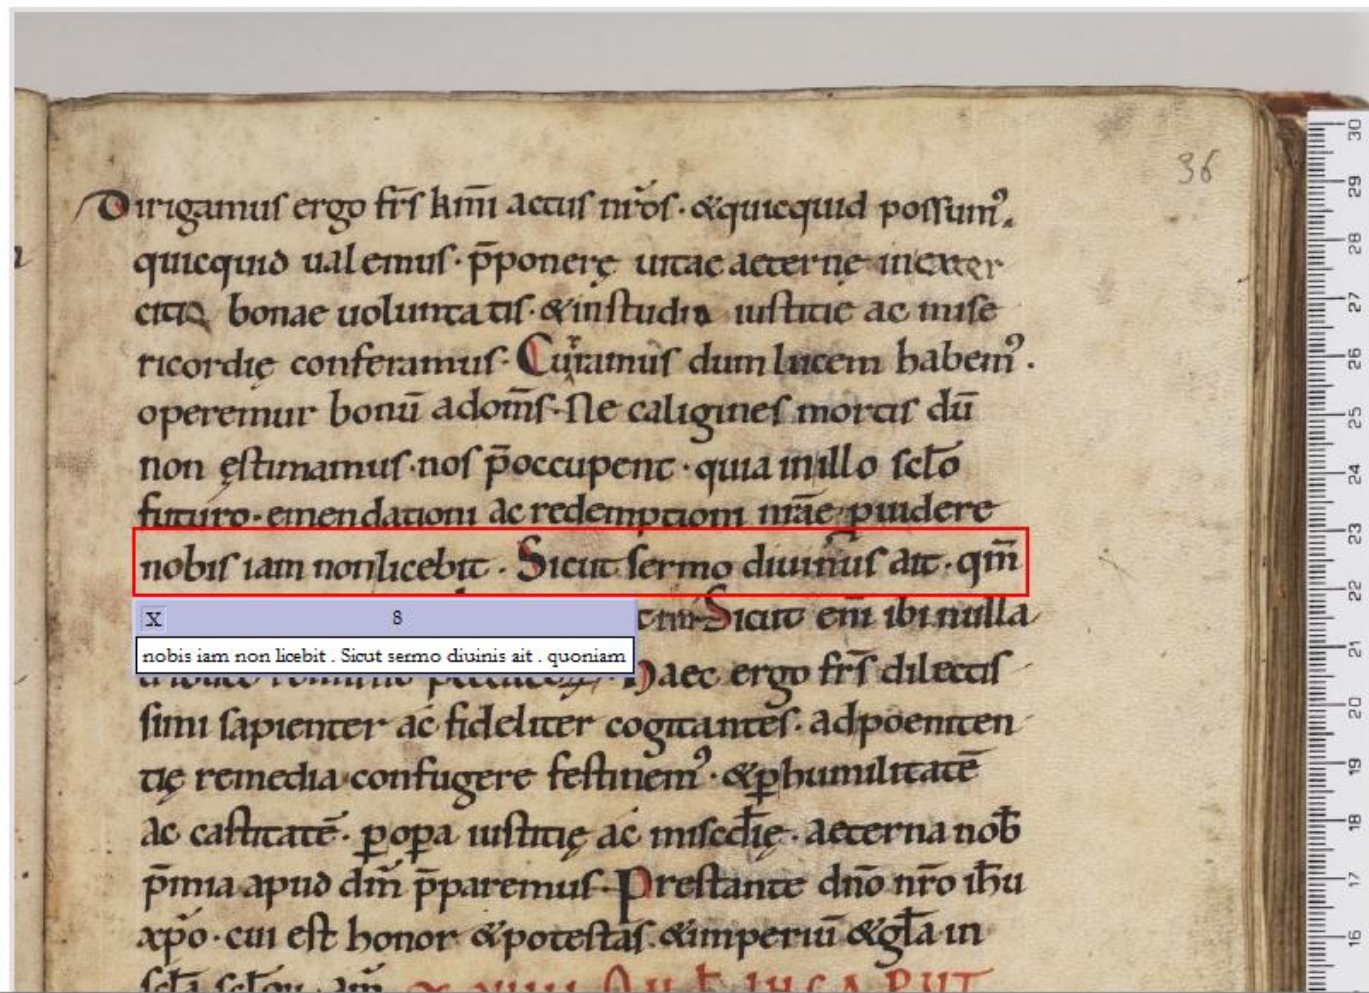 36
Dirigamus ergo fr̄s km̄i actus nr̄os · &quicquid possum᾽.
quicquid ualemus · p̄ponere uitae aeternę inexer
citio bonae uoluntatis · &instudio iustitie ac mise
ricordię conferamus · Curamus dum lucem habem᾽ .
operemur bonū adom̄s · Ne caligines mortis dū
non ęstimamus · nos p̄occupent · quia inillo sclō
futuro · emendationi ac redemptioni nr̄ae puidere
nobis iam nonlicebit . Sicut sermo diuinus ait · qm̄
Sicut eni̅ ibi nulla
X 8
nobis iam non licebit . Sicut sermo diuinis ait . quoniam
haec ergo fr̄s dilectis
simi sapienter ac fideliter cogitantes · adpoeniten
tię remedia confugere festinem᾽ · &ꝑhumilitatē
ac castitatē · ꝑopa iustitię ac misc̄dię · aeterna nob̄
p̄mia apud dm̄ p̄paremus · Prestante dn̄o nr̄o ih̄u
xp̄o · cui est honor &potestas · &imperiū &gl̄a in
scl̄a scl̄oꝝ · am̄
30
29
28
27
26
25
24
23
22
21
20
19
18
17
16